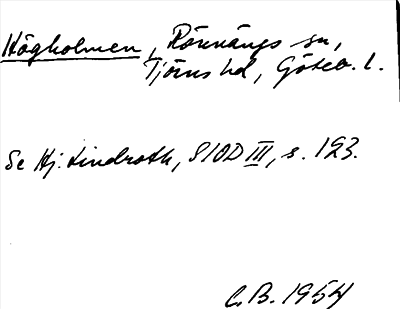 Högholmen, Rönnängs sn,
Tjörns hd, Göteb. l.
Se Hj. Lindroth, SIOD III, s. 193.
C.B. 1954